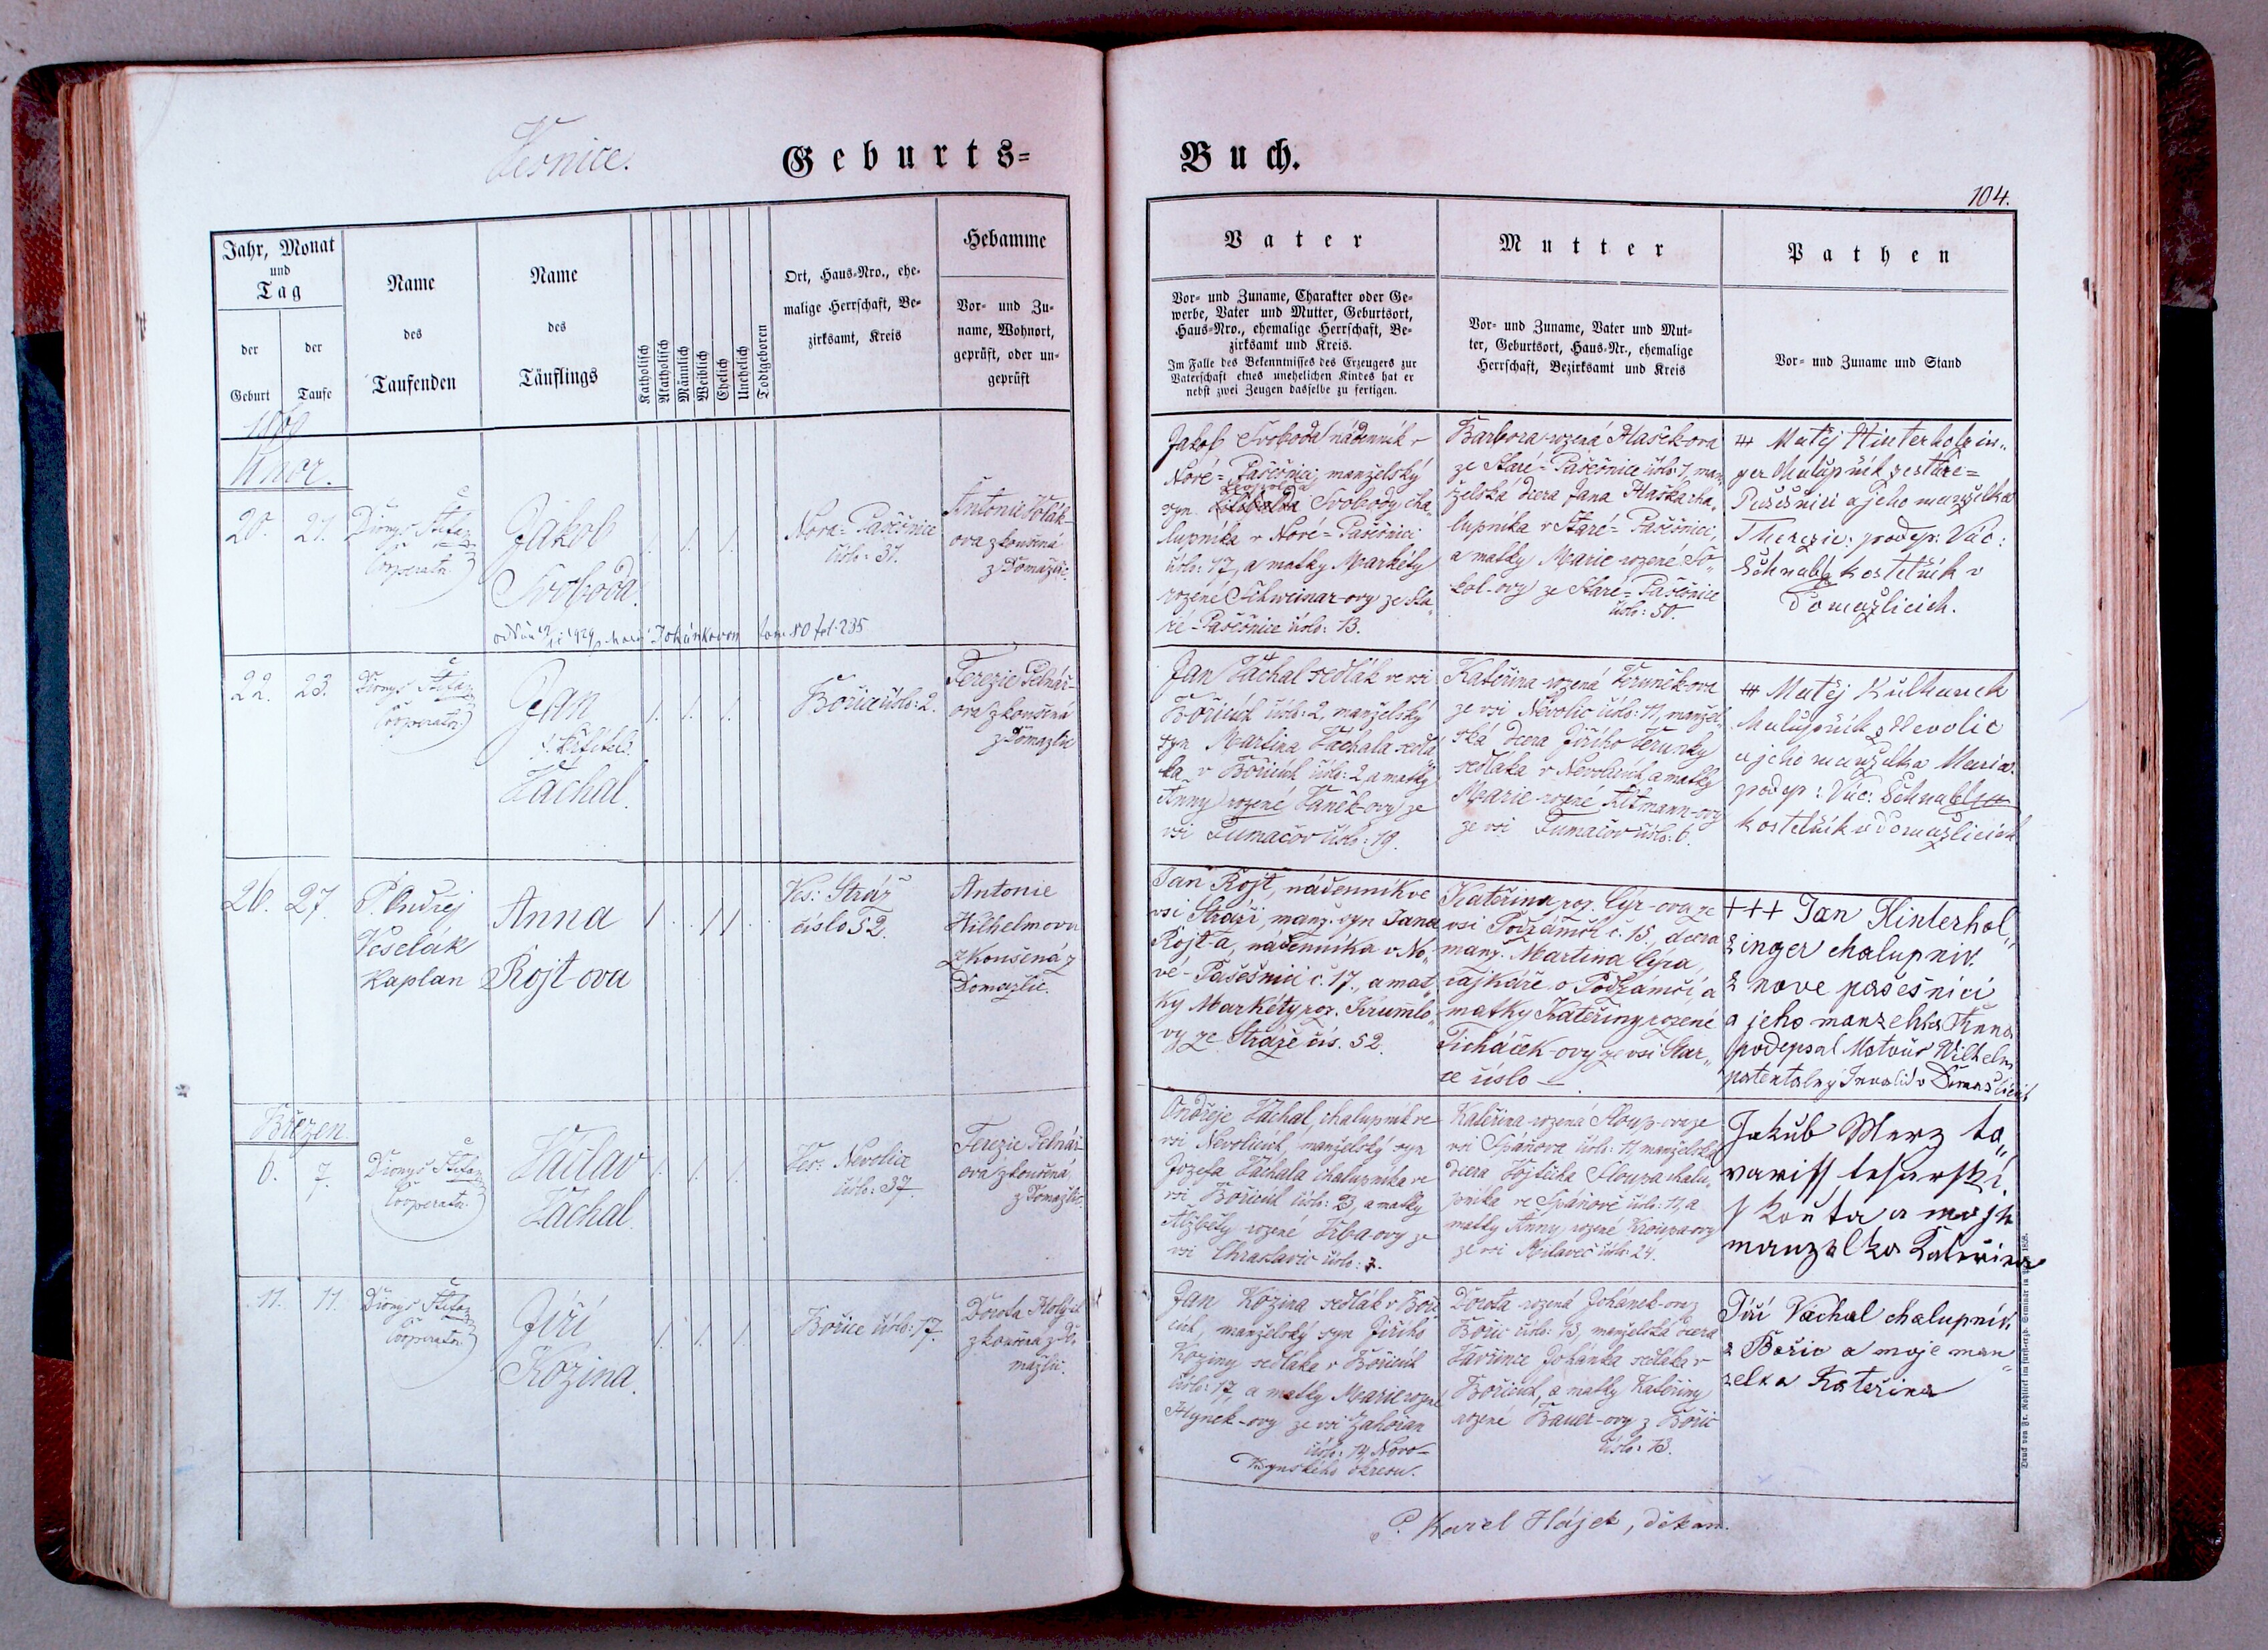 Vesnice.
Geburts=
Buch.
104.
Jahr, Monat
und
Tag
der
Geburt
der
Taufe
Name
des
Taufenden
Name
des
Täuflings
Katholisch
Akatholisch
Männlich
Weiblich
Ehelich
Unehelich
Todtgeboren
Ort, Haus=Nro., ehe=
malige Herrschaft, Be=
zirksamt, Kreis
Hebamme
Vor= und Zu=
name, Wohnort,
geprüft, oder un=
geprüft
Vater
Vor= und Zuname, Charakter oder Ge=
werbe, Vater und Mutter, Geburtsort,
Haus=Nro., ehemalige Herrschaft, Be=
zirksamt und Kreis.
Im Falle des Bekenntnisses des Erzeugers zur
Vaterschaft eines unehelichen Kindes hat er
nebst zwei Zeugen dasselbe zu fertigen.
Mutter
Vor= und Zuname, Vater und Mut=
ter, Geburtsort, Haus=Nr., ehemalige
Herrschaft, Bezirksamt und Kreis
Pathen
Vor= und Zuname und Stand
Únor.
20. 21.
Dionys Štefan
Cooperator
Jakob
Svoboda.
Nová=Pasečnice
číslo: 31.
Antonie
ova zkoušená
z Domažlic.
Jakob Svoboda nádenník v
Nové=Pasečnici, manželský
syn Svobody cha„
lupníka v Nové=Pasečnici
číslo: 17, a matky Markéty
rozené Schweinar-ovy ze Sta„
ré=Pasečnice číslo: 13.
Barbora rozená Haček-ova
ze Staré=Pasečnice číslo: 7, man„
želská dcera Jana Hačka cha„
lupníka v Staré=Pasečnici,
a matky Marie rozené So„
kol-ovy ze Staré=Pasečnice
číslo: 50.
+++ Matěj Hinterholzin„
ger chalupník ze staré=
Pasečnici a jeho manželka
Therezie: podep: Vác:
Schnabl kostelník v
Domažlicích.
22. 23.
Dionys Štefan
Cooperator
Jan
Křtitel
Váchal.
Bořice číslo: 2.
Terezie Pelnář-
ova zkoušená
z Domažlic
Jan Váchal sedlák ve vsi
Bořicích číslo: 2, manželský
syn Martina Váchala sedlá
ka v Bořicích číslo: 2, a matky
Anny rozené Vaněk-ovy ze
vsi Tumačov číslo: 19.
Kateřina rozená
ze vsi Nevolic číslo: 11, manžel„
ská dcera Jiřího
sedláka v Nevolicích a matky
Marie rozené Altmann-ovy
ze vsi Tumačov číslo: 6.
+++ Matěj Kulhanek
chalupník z Nevolic
a jeho manželka Maria.
podep: Vác: Schnabl
kostelník v Domažlicích
26. 27.
P. Ondřej
Veselák
kaplan
Anna
Rojt-ova
Ves: Stráž
číslo 52.
Antonie
Wilhelmova
zkoušená z
Domažlic.
Jan Rojt, nádenník ve
vsi Stráži, manž. syn Jana
Rojt-a, nádenníka v No„
vé-Pasešnici č. 17., a mat„
ky Markéty roz. Krumlo„
vy ze Stráže čís. 52.
Kateřina roz. Cýr-ova ze
vsi Podzámčí č. 15., dcera
manž. Martina Cýra,
v Podzamčí a
matky Kateřiny rozené
Ticháček-ovy ze vsi Star„
ce číslo —.
+++ Jan Hinterhol„
zinger chalupník
z nove pasešnici
a jeho manzelka Anna
podepsal Matouš Wilhelm
patentalný Invalid v Domažlicích
Březen.
6. 7.
Dionys Štefan
Cooperator
Václav
Váchal.
Ves: Nevolice
číslo: 37.
Terezie Pelnář-
ova zkoušená
z Domažlic.
Ondřeje Váchal, chalupník ve
vsi Nevolicích, manželský syn
Josefa Váchala chalupníka ve
vsi Bořicích číslo: 23, a matky
Alžběty rozené Vrba-ovy ze
vsi Chrastavic číslo: 7.
Kateřina rozená Sloup-ova ze
vsi Spáňova číslo: 11, manželská
dcera Vojtěcha Sloupa chalu„
pníka ve Spáňově číslo: 11, a
matky Anny rozené Kroupa-ovy
ze vsi Milavec číslo: 24.
Jakub Merz to„
variss tesarski
s kouta a moje
manzelka Kateřina
11. 11.
Dionys Štefan
Cooperator
Jiří
Kozina.
Bořice číslo: 17.
Dorota
zkoušená z Do„
mažlic.
Jan Kozina sedlák v Boři
cích, manželský syn Jiřího
Koziny sedláka v Bořicích
číslo: 17, a matky Marie rozené
Hynek-ovy ze vsi Zahořan
číslo: 14, Novo-
kdynského okresu.
Dorota rozená Johánek-ova z
Bořic číslo: 13, manželská dcera
Vavřince Johánka sedláka v
Bořicích, a matky Kateřiny
rozené Bauer-ovy z Bořic
číslo: 13.
Jiří Vachal chalupník
z Bořic a moje man„
zelka Kateřina
P. Karel Hájek, děkan.